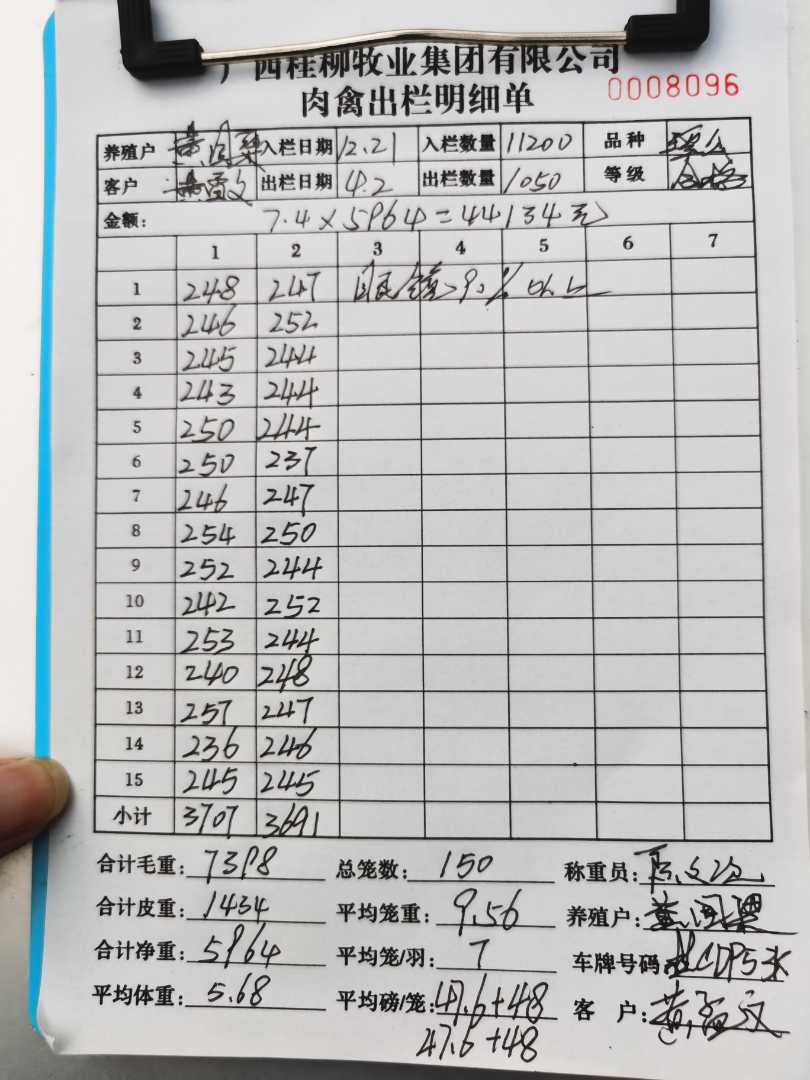 广西桂柳牧业集团有限公司
肉禽出栏明细单 0008096
养殖户 入栏日期 12.21 入栏数量 11200 品种
客户 出栏日期 4.2 出栏数量 1050 等级
金额: 7.4×5964=44134元
1 2 3 4 5 6 7
1 248 247 90%以上
2 246 252
3 245 244
4 243 244
5 250 244
6 250 237
7 246 247
8 254 250
9 252 244
10 242 252
11 253 244
12 240 248
13 257 247
14 236 246
15 245 245
小计 3707 3691
合计毛重: 7398 总笼数: 150 称重员:
合计皮重: 1434 平均笼重: 9.56 养殖户:
合计净重: 5964 平均笼/羽: 7 车牌号码:
平均体重: 5.68 平均磅/笼: 47.6+48 客户:
47.6+48